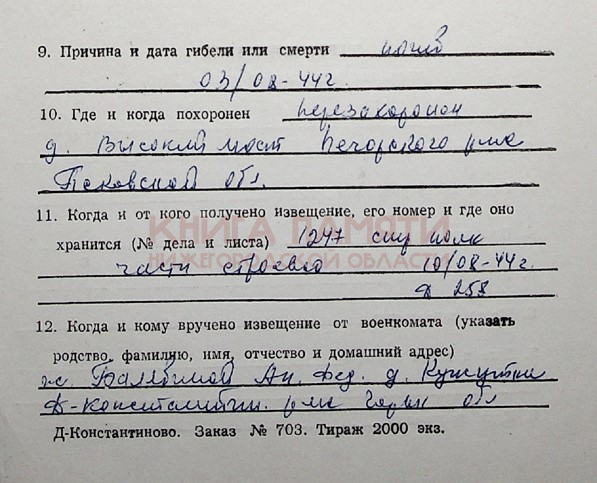 9. Причина и дата гибели или смерти погиб
03/08-44г.
10. Где и когда похоронен перезахоронен
д. Высокий мост Печорского р-на
Псковской обл.
11. Когда и от кого получено извещение, его номер и где оно
КНИГА ПАМЯТИ
хранится (№ дела и листа) 1247 стр полк
НИЖЕГОРОДСКОЙ ОБЛАСТИ
части строевго 10/08-44г.
258
12. Когда и кому вручено извещение от военкомата (указать
родство, фамилию, имя, отчество и домашний адрес)
ж. Балябиной Ан. Фед. д.
Д-Константин. р-на Горьк обл
Д-Константиново. Заказ № 703. Тираж 2000 экз.